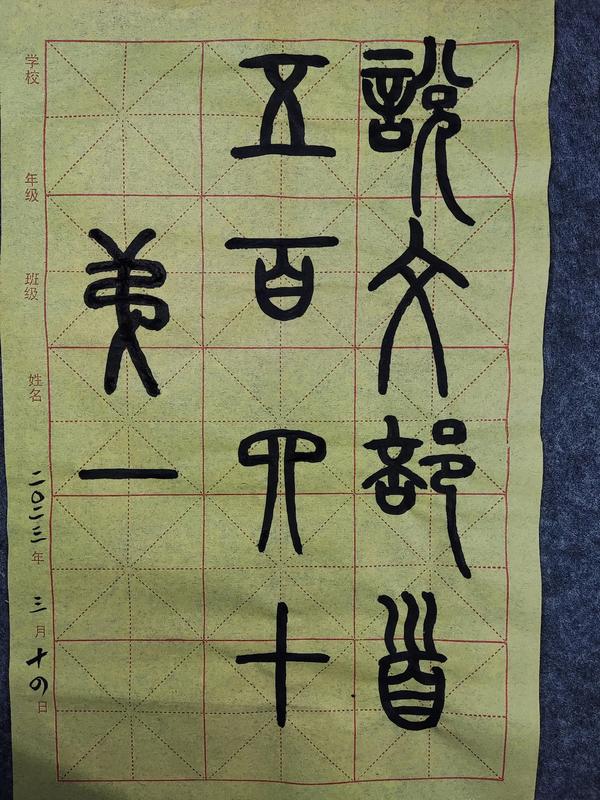 說文部首
五百四十
弟一
学校
年级
班级
姓名
二〇二三年三月十四日